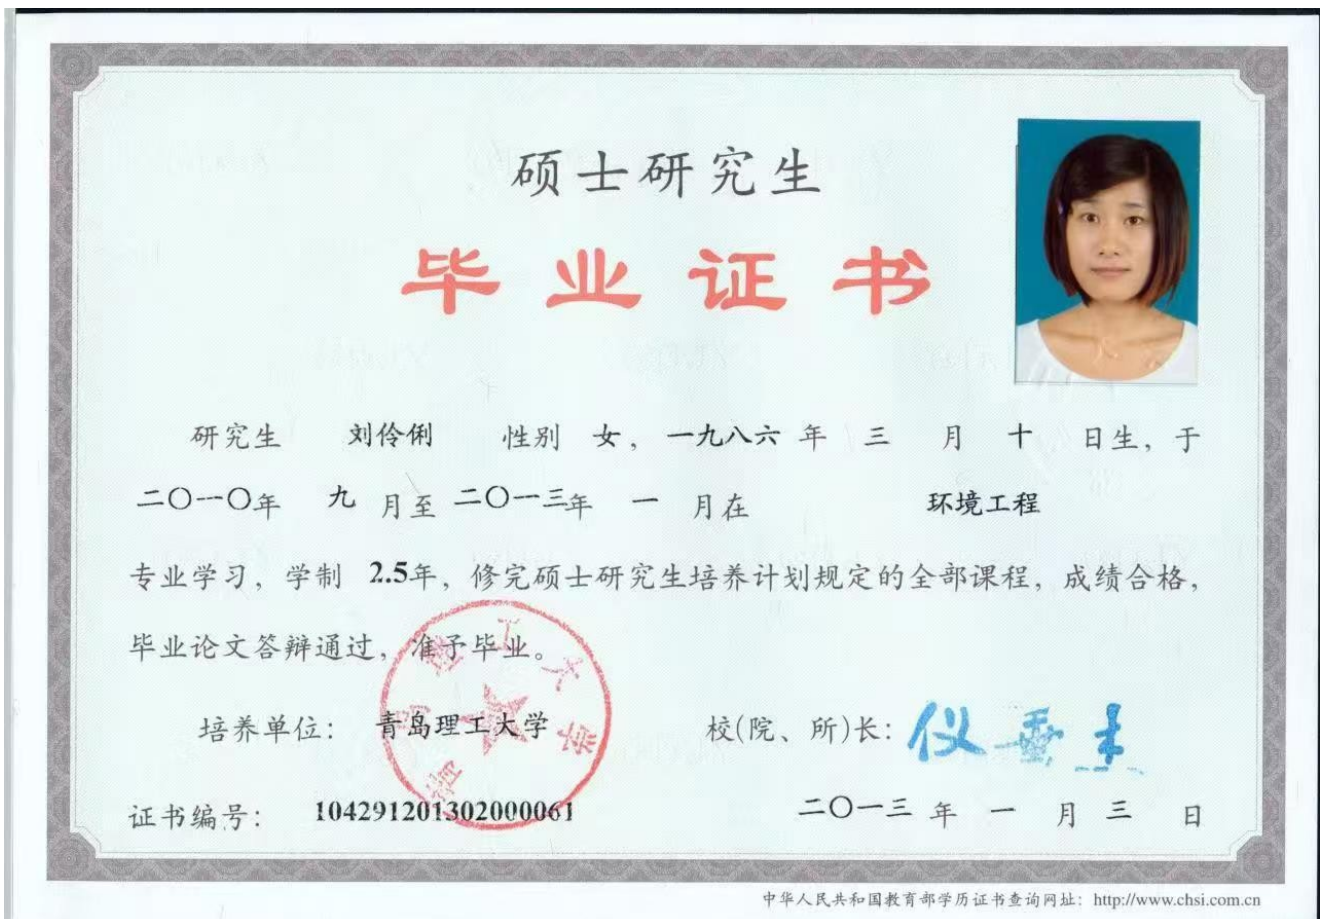 硕士研究生
毕业证书
研究生 刘伶俐 性别 女，一九八六 年 三 月 十 日生，于
二〇一〇年 九 月至 二〇一三年 一 月在 环境工程
专业学习，学制 2.5年，修完硕士研究生培养计划规定的全部课程，成绩合格，
毕业论文答辩通过，准予毕业。
培养单位： 青岛理工大学 校(院、所)长：仪垂杰
青岛理工大学
证书编号： 104291201302000061 二〇一三 年 一 月 三 日
中华人民共和国教育部学历证书查询网址：http://www.chsi.com.cn